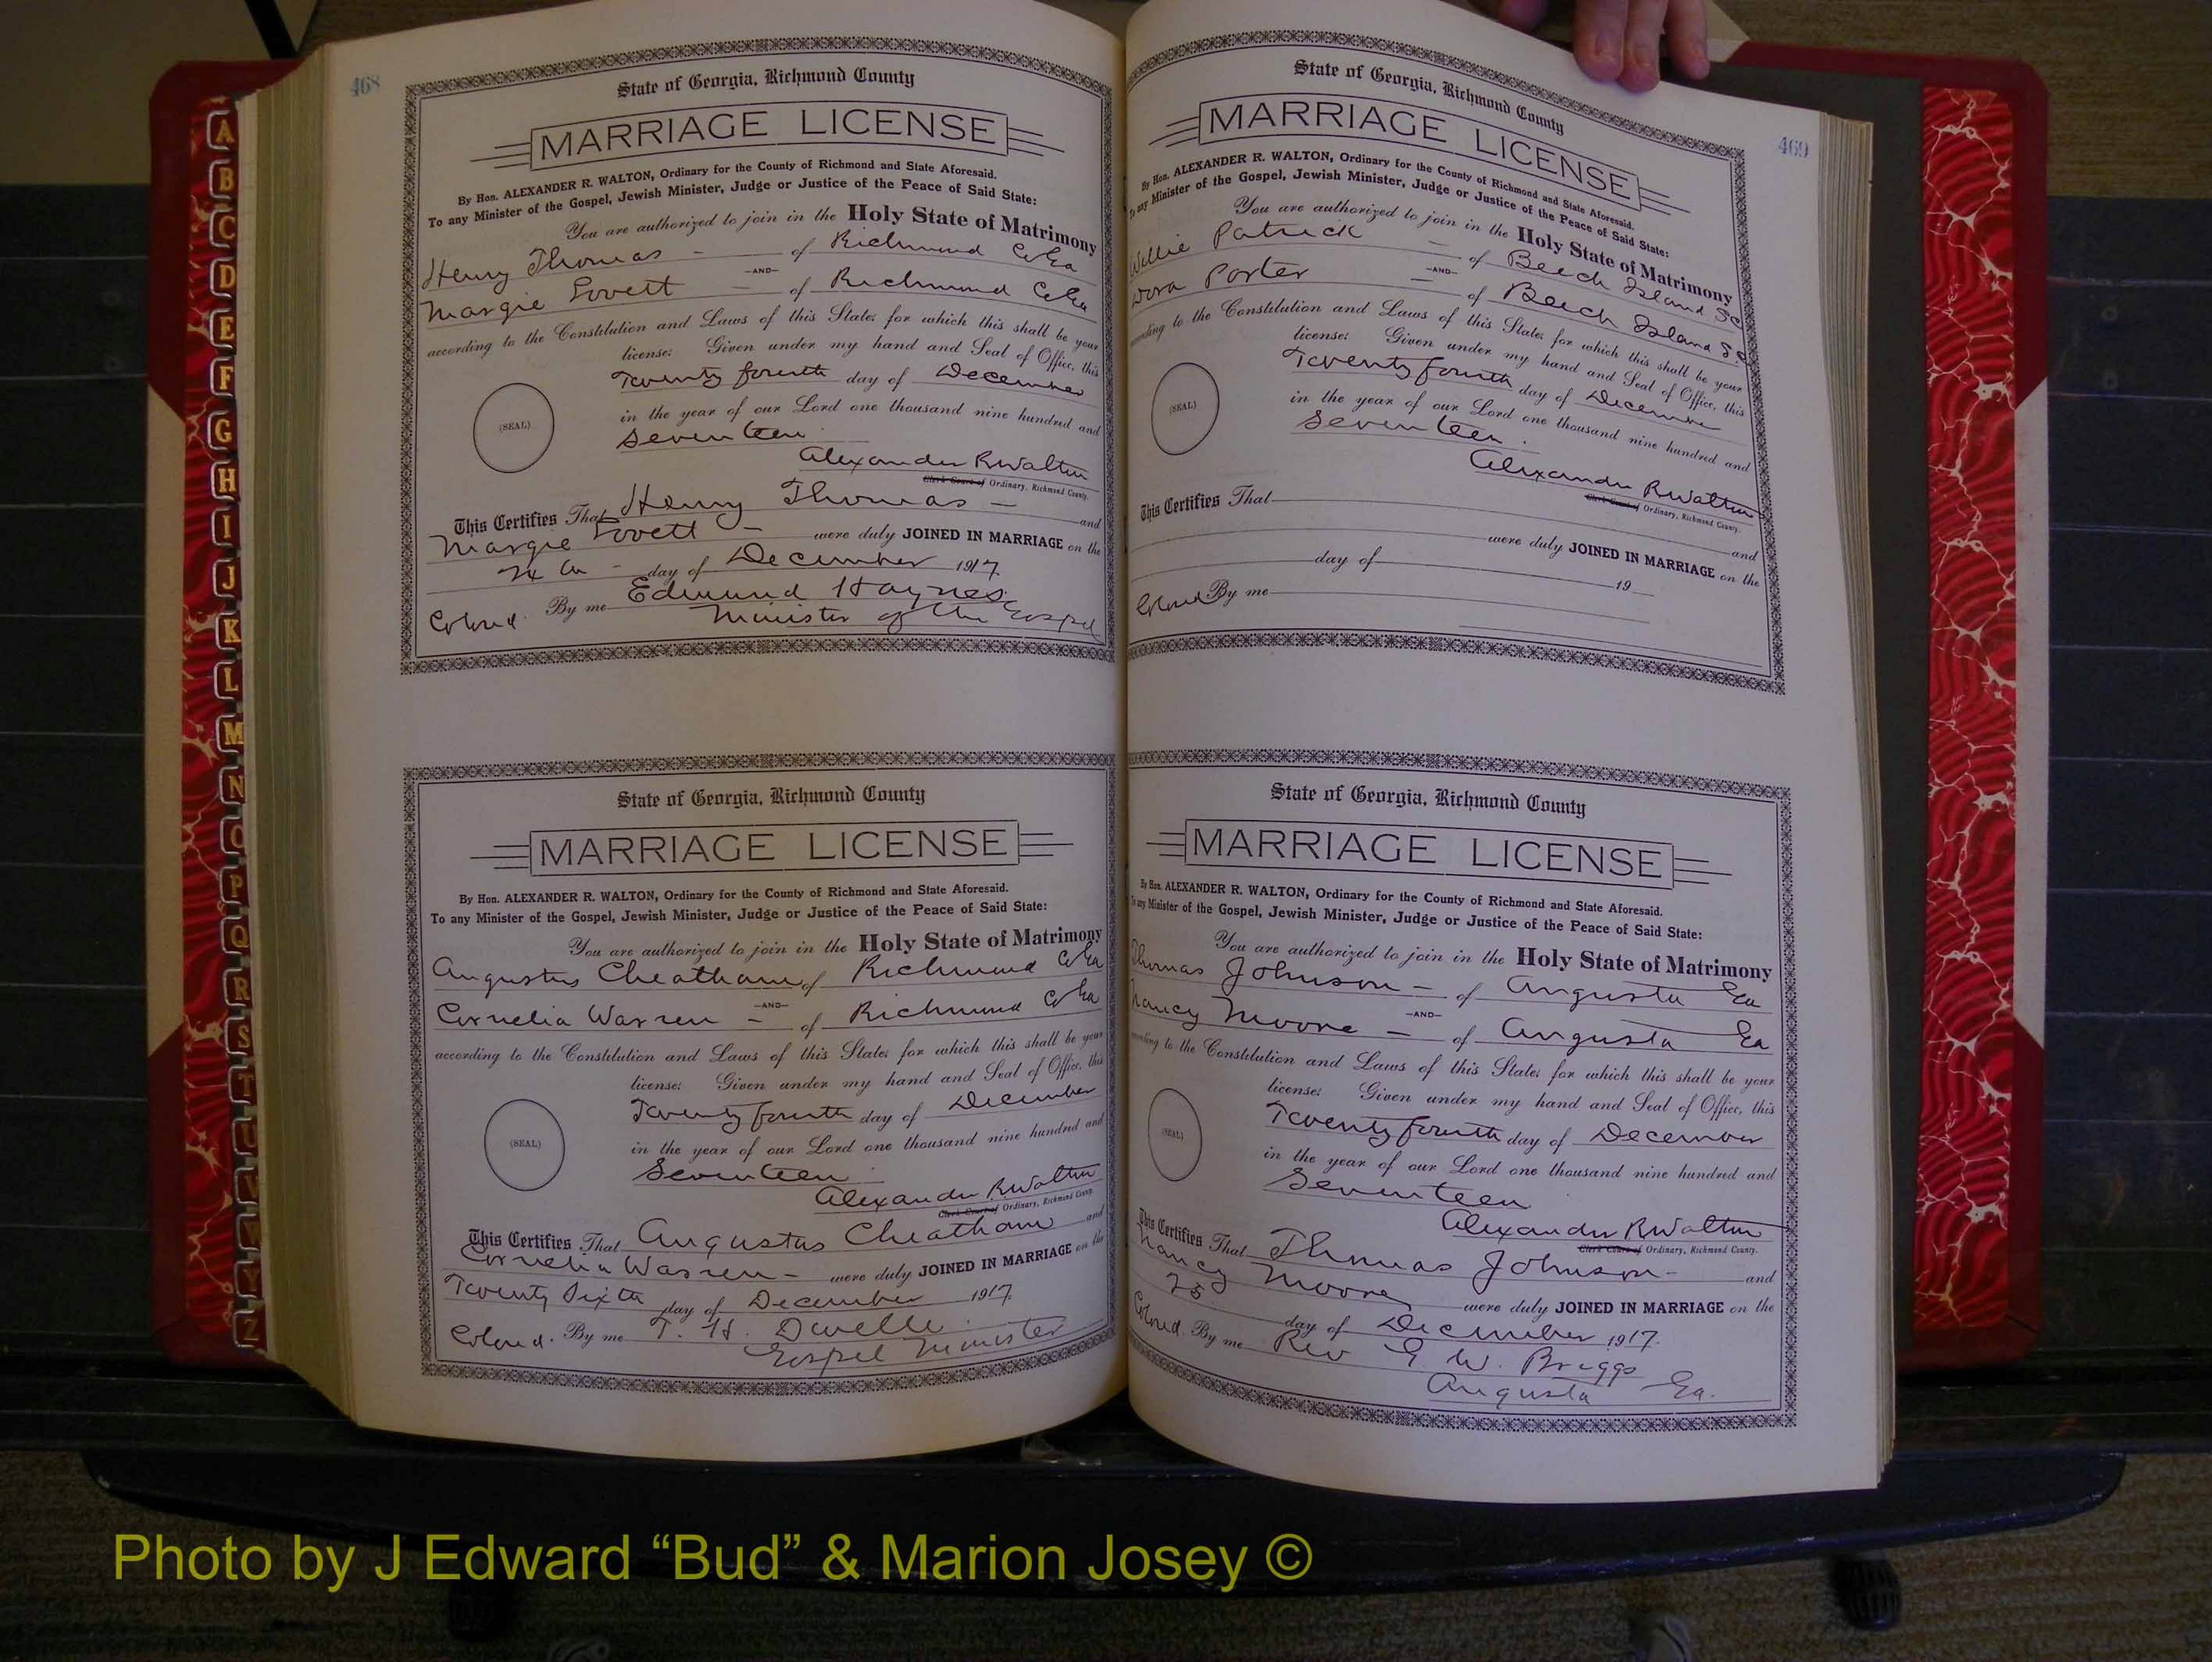 468
State of Georgia, Richmond County
MARRIAGE LICENSE
By Hon. ALEXANDER R. WALTON, Ordinary for the County of Richmond and State Aforesaid.
To any Minister of the Gospel, Jewish Minister, Judge or Justice of the Peace of Said State:
You are authorized to join in the Holy State of Matrimony
Henry Thomas - of Richmond Co Ga
-AND-
Margie Lovett - of Richmond Co Ga
according to the Constitution and Laws of this State; for which this shall be your
license: Given under my hand and Seal of Office, this
Twenty fourth day of December
in the year of our Lord one thousand nine hundred and
(SEAL)
Seventeen
Alexander R Walton
Clerk Court of Ordinary, Richmond County.
This Certifies That Henry Thomas - and
Margie Lovett - were duly JOINED IN MARRIAGE on the
24 th - day of December 1917.
Colored. By me Edmund Haynes
Minister of the Gospel
State of Georgia, Richmond County
MARRIAGE LICENSE
By Hon. ALEXANDER R. WALTON, Ordinary for the County of Richmond and State Aforesaid.
To any Minister of the Gospel, Jewish Minister, Judge or Justice of the Peace of Said State:
You are authorized to join in the Holy State of Matrimony
Augustus Cheatham of Richmond Co Ga
-AND-
Cornelia Warren - of Richmond Co Ga
according to the Constitution and Laws of this State; for which this shall be your
license: Given under my hand and Seal of Office, this
Twenty fourth day of December
(SEAL)
in the year of our Lord one thousand nine hundred and
Seventeen
Alexander R Walton
Clerk Court of Ordinary, Richmond County.
This Certifies That Augustus Cheatham and
Cornelia Warren - were duly JOINED IN MARRIAGE on the
Twenty Sixth day of December 1917.
Colored. By me T. H. Dwelle
Gospel Minister
469
State of Georgia, Richmond County
MARRIAGE LICENSE
By Hon. ALEXANDER R. WALTON, Ordinary for the County of Richmond and State Aforesaid.
To any Minister of the Gospel, Jewish Minister, Judge or Justice of the Peace of Said State:
You are authorized to join in the Holy State of Matrimony
Willie Patrick - of Beech Island SC
-AND-
Dora Porter - of Beech Island S.C
according to the Constitution and Laws of this State; for which this shall be your
license: Given under my hand and Seal of Office, this
Twenty fourth day of December
(SEAL)
in the year of our Lord one thousand nine hundred and
Seventeen.
Alexander R Walton
Clerk Court of Ordinary, Richmond County.
This Certifies That
and
were duly JOINED IN MARRIAGE on the
day of 19
Colored By me
State of Georgia, Richmond County
MARRIAGE LICENSE
By Hon. ALEXANDER R. WALTON, Ordinary for the County of Richmond and State Aforesaid.
To any Minister of the Gospel, Jewish Minister, Judge or Justice of the Peace of Said State:
You are authorized to join in the Holy State of Matrimony
Thomas Johnson - of Augusta Ga
-AND-
Nancy Moore - of Augusta Ga
according to the Constitution and Laws of this State; for which this shall be your
license: Given under my hand and Seal of Office, this
Twenty fourth day of December
(SEAL)
in the year of our Lord one thousand nine hundred and
Seventeen
Alexander R Walton
Clerk Court of Ordinary, Richmond County.
This Certifies That Thomas Johnson - and
Nancy Moore were duly JOINED IN MARRIAGE on the
25 day of December 1917.
Colored. By me Rev G. W. Briggs
Augusta Ga.
A
B
C
D
E
F
G
H
I
J
K
L
M
N
O
P
Q
R
S
T
U
V
W
Y
Z
Photo by J Edward “Bud” & Marion Josey ©